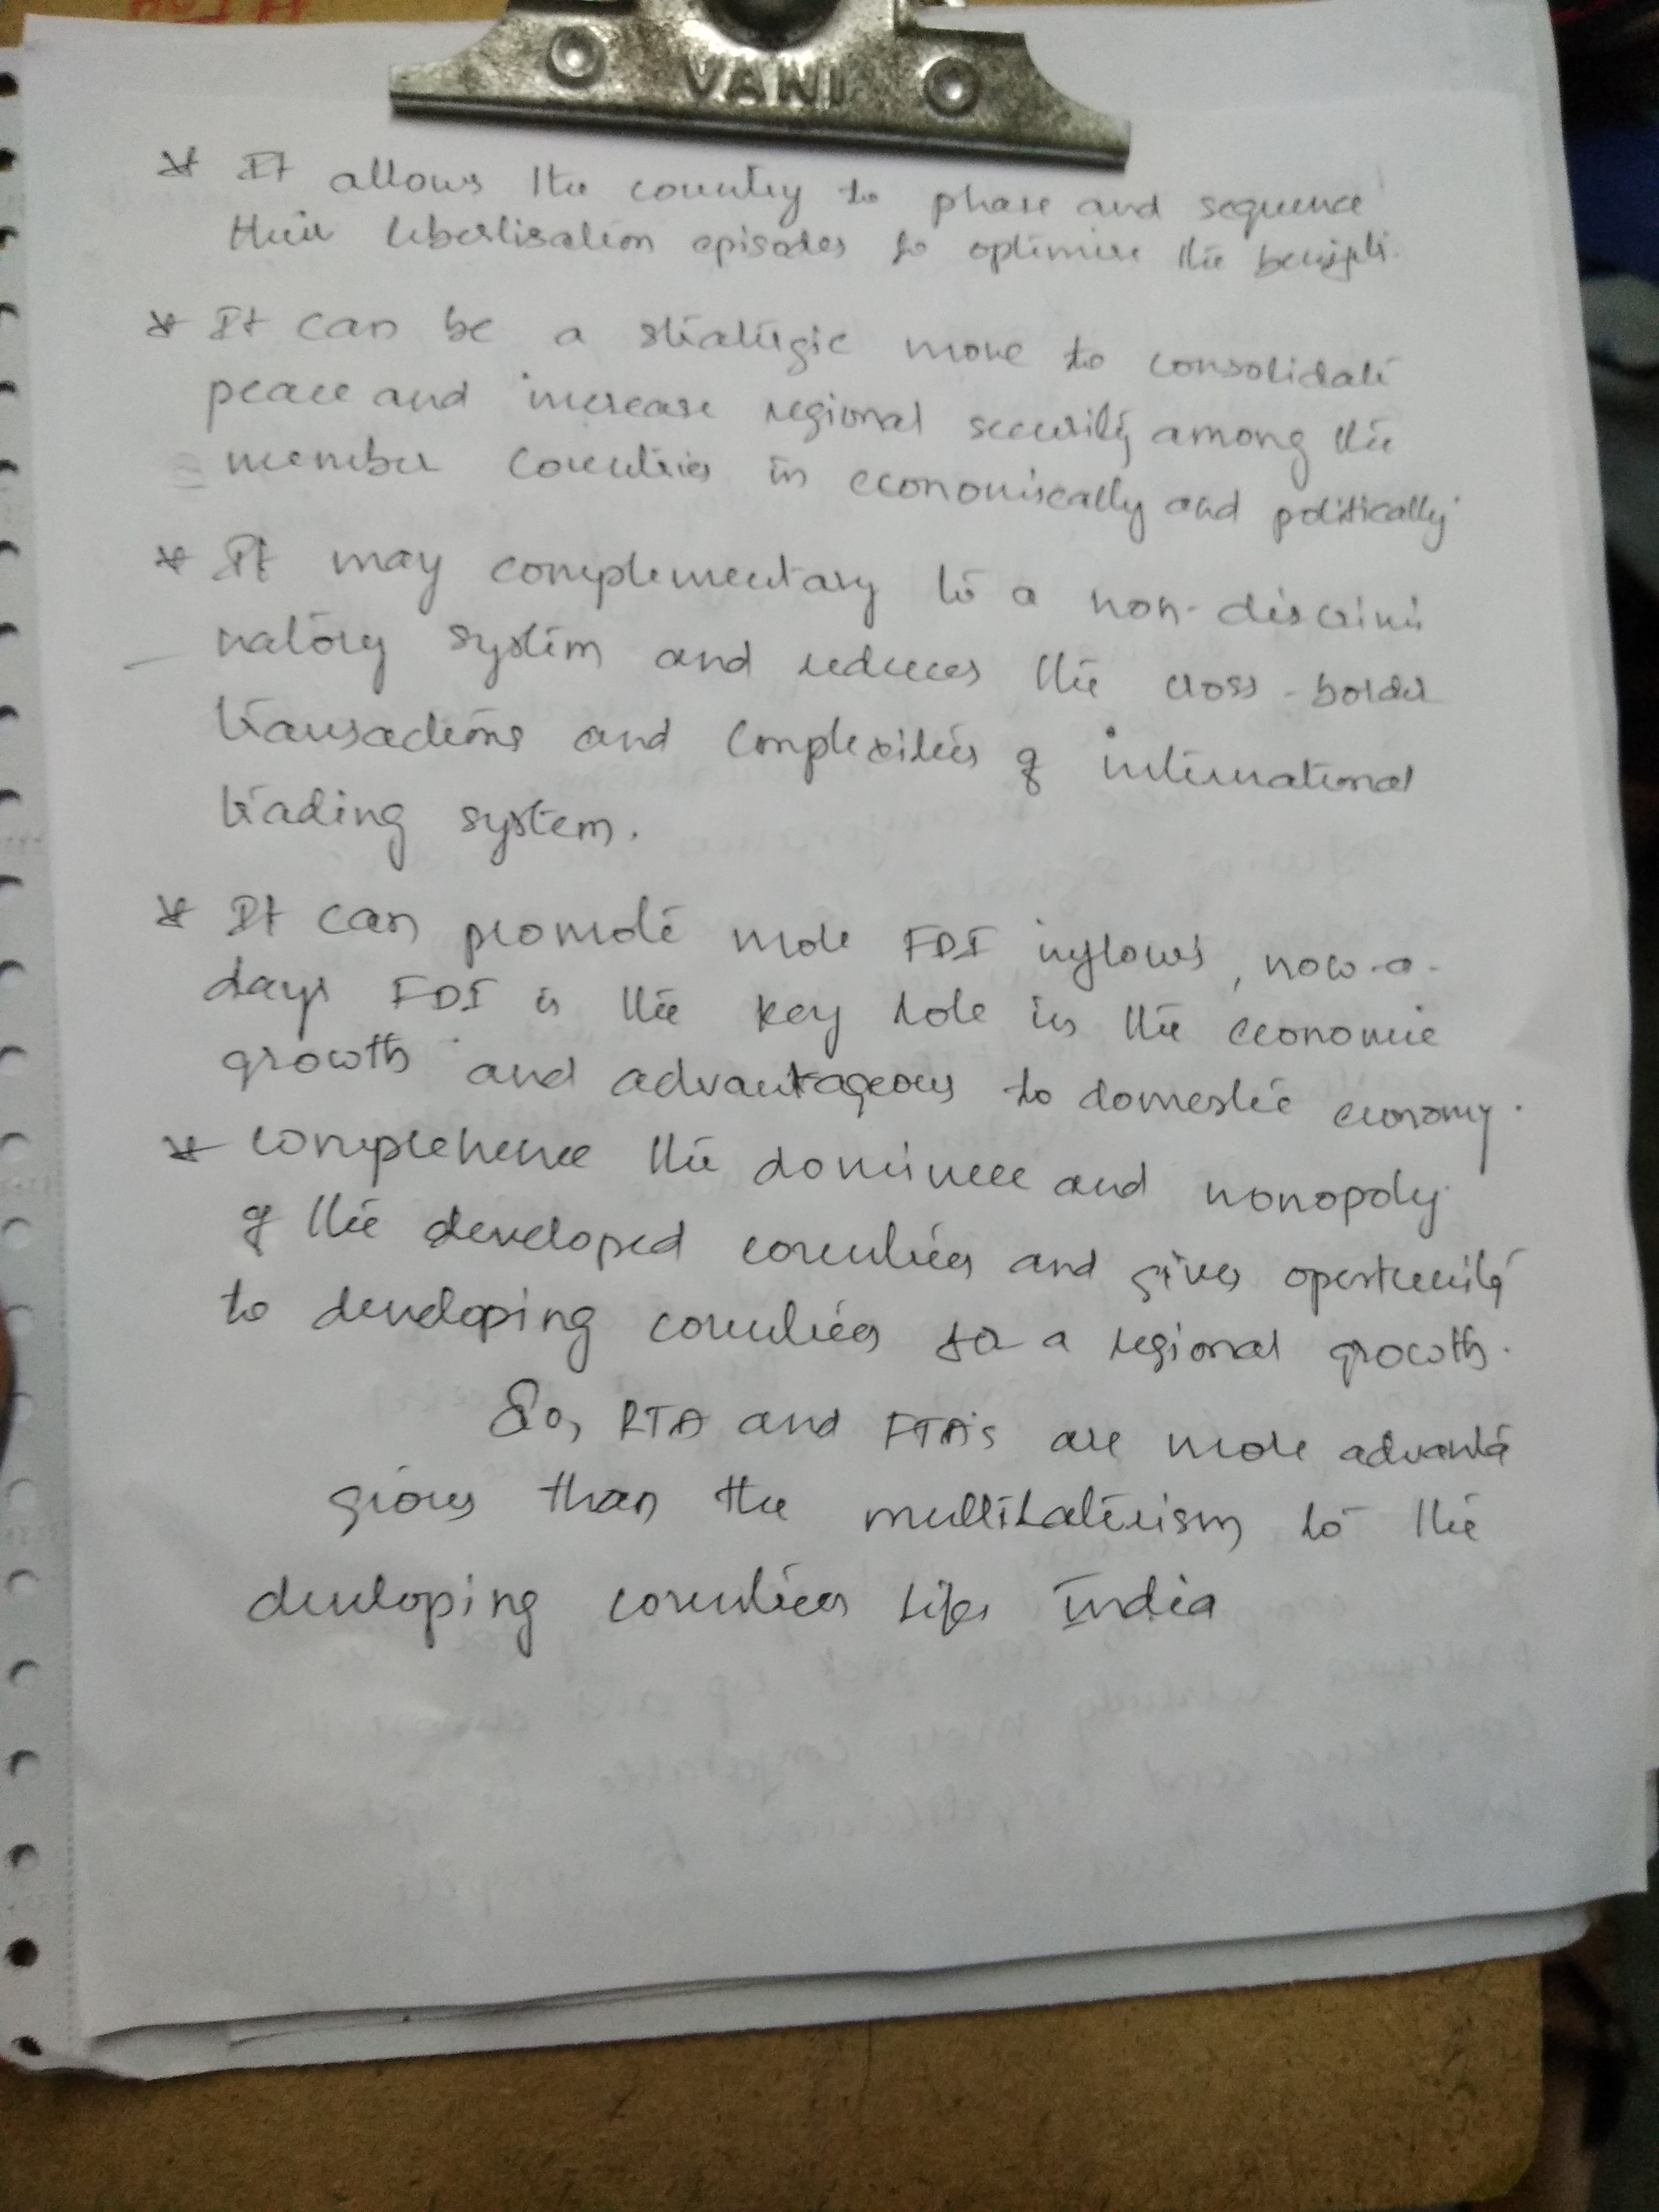 VANI
* It allows the country to phase and sequence
their liberlisation episodes to optimise the benifits.
* It can be a strategic move to consolidate
peace and increase regional security among the
member countries in economiscally and politically
* It may complementary to a non-discrimi
natory system and reduces the cross-border
transactions and complexities of international
trading system.
* It can promote more FDI inflows, now-a-
days FDI is the key role in the economic
growth and advantageous to domestic economy.
* the dominece and monopoly
of the developed countries and gives oportunity
to developing countries for a regional growth.
So, RTA and FTA's are more advanta
gious than the multilaterism to the
developing countries like India